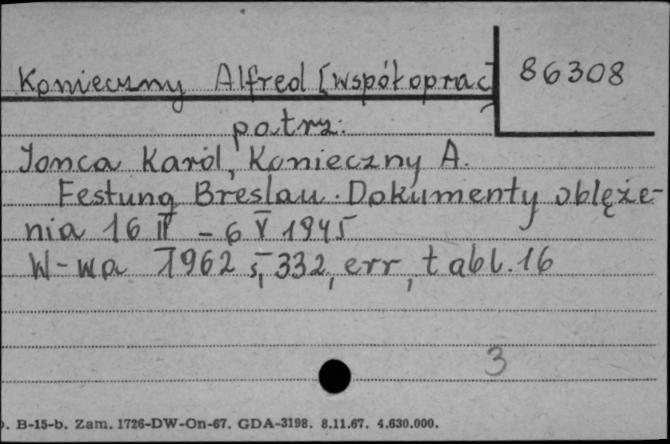 Konieczny Alfred [współoprac] 86308
patrz:
Jonca Karol, Konieczny A.
Festung Breslau. Dokumenty oblęże-
nia 16 II - 6 V 1945
W-wa 1962 s, 332, err, tabl. 16
3
. B-15-b. Zam. 1726-DW-On-67. GDA-3198. 8.11.67. 4.630.000.